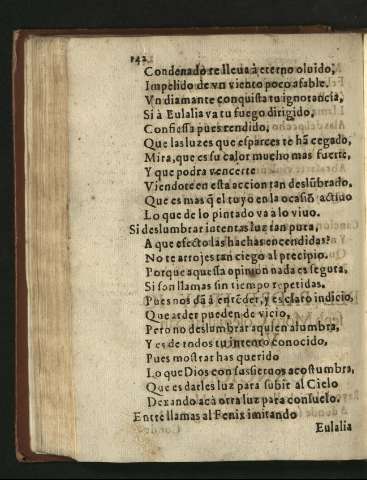 142
Condenado te lleua à eterno oluido,
Impelido de vn viento poco afable.
Vn diamante conquista tu ignorancia,
Si à Eulalia va tu fuego dirigido,
Confiessa pues rendido,
Que las luzes que esparces te hã cegado,
Mira, que es su calor mucho mas fuerte,
Y que podra vencerte
Viendote en esta accion tan deslũbrado.
Que es mas q̃ el tuyo en la ocasiõ actiuo
Lo que de lo pintado va a lo viuo.
Si deslumbrar intentas luz tan pura,
A que efecto las hachas encendidas?
No te arrojes tan ciego al precipio.
Porque aquessa opinion nada es segura,
Si son llamas sin tiempo repetidas.
Pues nos dã à entẽder, y es claro indicio,
Que arder pueden de vicio,
Pero no deslumbrar a quien alumbra,
Y es de todos tu intento conocido,
Pues mostrar has querido
Lo que Dios con sus sieruos acostumbra,
Que es darles luz para subir al Cielo
Dexando acà otra luz para consuelo.
Entre llamas al Fenix imitando
Eulalia